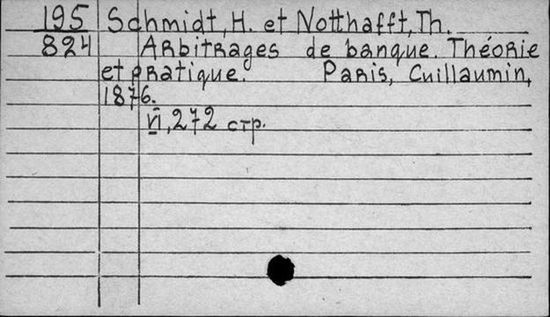 195 Schmidt, H. et Notthafft, Th.
824 Arbitrages de banque. Théorie
et pratique. Paris, Cuillaumin,
1876.
VI, 272 стр.